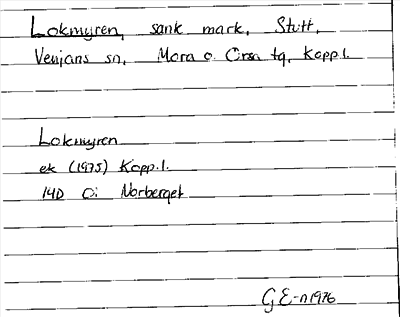 Lokmyren, sank mark, Stutt,
Venjans sn, Mora o. Orsa tg, Kopp.l.
Lokmyren
ek (1975) Kopp.l.
14D 0i Norberget
GE-n 1976